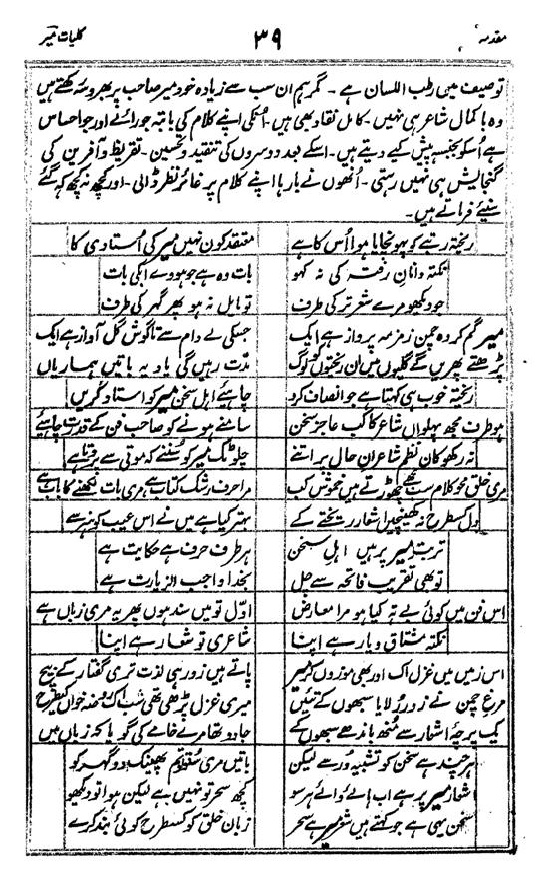 مقدمہ ۳۹ کلیات میر
توصیف میں رطب اللسان ہے۔ مگر ہم ان سب سے زیادہ خود میر صاحب پر بھروسہ رکھتے ہیں
وہ با کمال شاعر ہی نہیں۔ کامل نقاد بھی ہیں۔ اُنکی اپنے کلام کی بابتہ جو رائے اور جو احساس
ہے اُسکو بجنسہٖ پیش کیے دیتے ہیں۔ اسکے بعد دوسروں کی تنقید و تحسین۔ تقریظ و آفریں کی
گنجایش ہی نہیں رہتی۔ اُنھوں نے بارہا اپنے کلام پر غائر نظر ڈالی۔ اور کچھ نہ کچھ کہہ گئے
سنیے فرماتے ہیں۔
ریختہ رتبے کو پہونچایا ہوا اُس کا ہے معتقد کون نہیں میر کی اُستادی کا
نکتہ دانانِ رفتہ کی نہ کہو بات وہ ہے جو ہووے ابکی بات
جو دیکھو مرے شعر تر کی طرف تو مایل نہ ہو پھر گہر کی طرف
میر گم کردہ چمن زمزمہ پرواز ہے ایک جسکی لے دام سے تا گوش گل آواز ہے ایک
پڑھتے پھریں گے گلیوں میں ان ریختوں کو لوگ مدّت رہیں گی یاد یہ باتیں ہماریاں
ریختہ خوب ہی کہتا ہے جو انصاف کرد چاہیے اہل سخن میر کو استاد کریں
ہو طرف مجھ پہلواں شاعر کا کب عاجز سخن سامنے ہونے کو صاحب فن کے قدرت چاہیے
نہ رکھو کان نظم شاعرانِ حال پر اتنے چلو ٹک میر کو سُننے کہ موتی سے پرتا ہے
مری خلق محو کلام سب مجھے چھوڑتے ہیں خموش کب مرا حرف رشک کتاب ہے مری بات لکھنے کا باب ہے
دل کسطرح نہ کھینچیں اشعار ریختے کے بہتر کیا ہے میں نے اس عیب کو ہنر سے
تربت میر پر ہیں اہل سخن ہر طرف حرف ہے حکایت ہے
تو بھی تقریب فاتحہ سے چل بخدا واجب الزیارت ہے
اس فن میں کوئی بے تہ کیا ہو مرا معارض اوّل تو میں سند ہوں پھر یہ مری زباں ہے
نکتہ مشتاق و یار ہے اپنا شاعری تو شعار ہے اپنا
اس زمیں میں غزل اک اور بھی موزوں کر میر پاتے ہیں زور ہی لذت تری گفتار کے بیچ
مرغ چمن نے زور رُلایا سبھوں کے تئیں میری غزل پڑھی تھی شب اک روضہ خواں کیطرح
یک پرچۂ اشعار سے منھ باندھے سبھوں کے جادو تھا مرے خامے کی گویا کہ زباں میں
ہر چند ہے سخن کو تشبیہ دُر سے لیکن باتیں مری سُنو تو تم پھینک دو گہر کو
شعار میر پر ہے اب ہائے وائے ہر سو کچھ سحر تو نہیں ہے لیکن ہوا تو دیکھو
سخن یہی ہے جو کہتے ہیں شعر میر ہے سحر زبان خلق کو کسطرح کوئی بند کرے